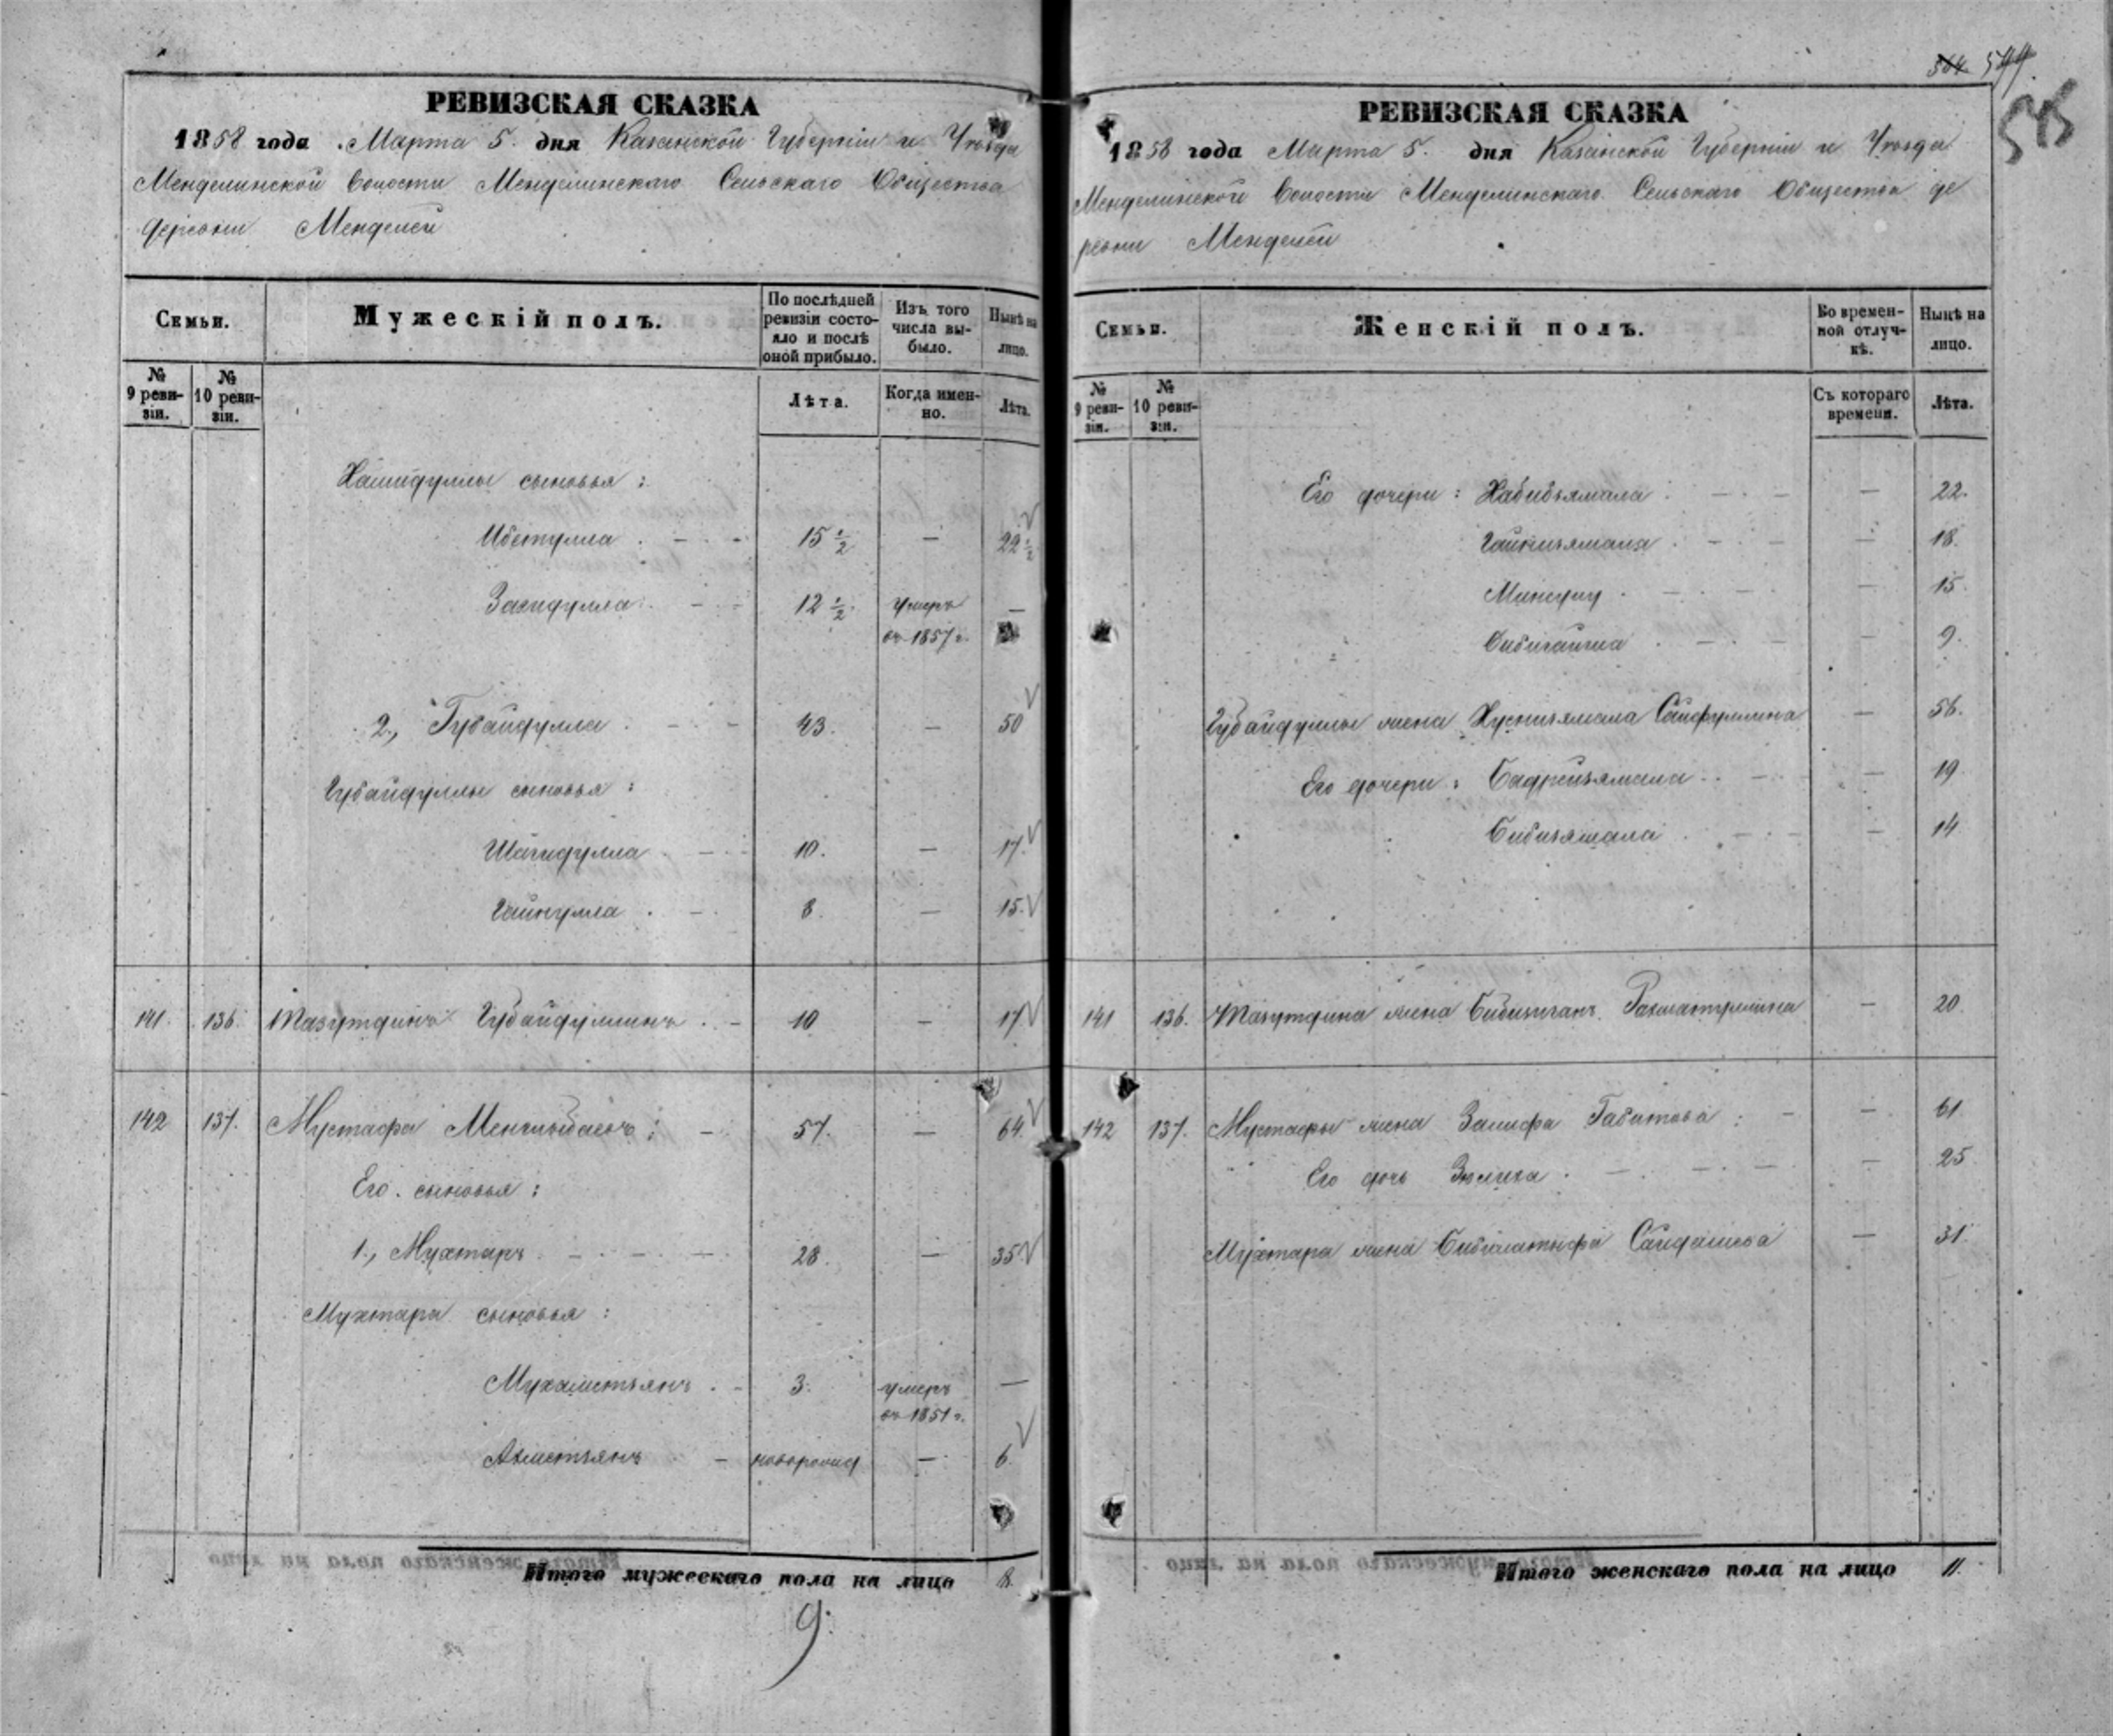 РЕВИЗСКАЯ СКАЗКА
1858 года Марта 5. дня Казанской Губернии и Уѣзда
Менделинской Волости Менделинскаго Сельскаго Общества
деревни Менделей
Семьи.
Мужескій полъ.
По послѣдней ревизіи состояло и послѣ оной прибыло.
Изъ того числа выбыло.
Нынѣ на лицо.
№ 9 ревизіи.
№ 10 ревизіи.
Лѣта.
Когда именно.
Лѣта.
Хамидуллы сыновья:
Ибетулла 15 ½ — 22 ½
Загидулла 12 ½ умеръ въ 1857 г. —
2., Губайдулла 43. — 50
Губайдуллы сыновья:
Шагидулла 10. — 17.
Гайнулла 8. — 15.
141. 136. Мазутдинъ Губайдуллинъ 10 — 17
142 137. Мустафа Менглыбаевъ: 57. — 64.
Его сыновья:
1., Мухтаръ 28. — 35
Мухтара сыновья:
Мухаметзянъ 3. умеръ въ 1851 г. —
Ахметзянъ новорожд — 6.
Итого мужескаго пола на лицо 8.
9.
504 544
545
РЕВИЗСКАЯ СКАЗКА
1858 года Марта 5. дня Казанской Губерніи и Уѣзда
Менделинской Волости Менделинскаго Сельскаго Общества де
ревни Менделей
Семьи.
Женскій полъ.
Во временной отлучкѣ.
Нынѣ на лицо.
№ 9 ревизіи.
№ 10 ревизіи.
Съ котораго времени.
Лѣта.
Его дочери: Хабибзямала — 22.
Гайнизямала — 18.
— 15.
Бибигайша — 9.
Губайдуллы жена Хуснизямала Сайфуллина — 56.
Его дочери: Бадризямала — 19
Бибизямала — 14
141 136. Мазутдина жена Бибизиганъ Рахматуллина — 20.
142 137. Мустафы жена Залифа Габитова: — 61
Его дочь Зюлиха — 25
Мухтара жена Бибилатыфа Сайдашева — 31.
Итого женскаго пола на лицо 11.